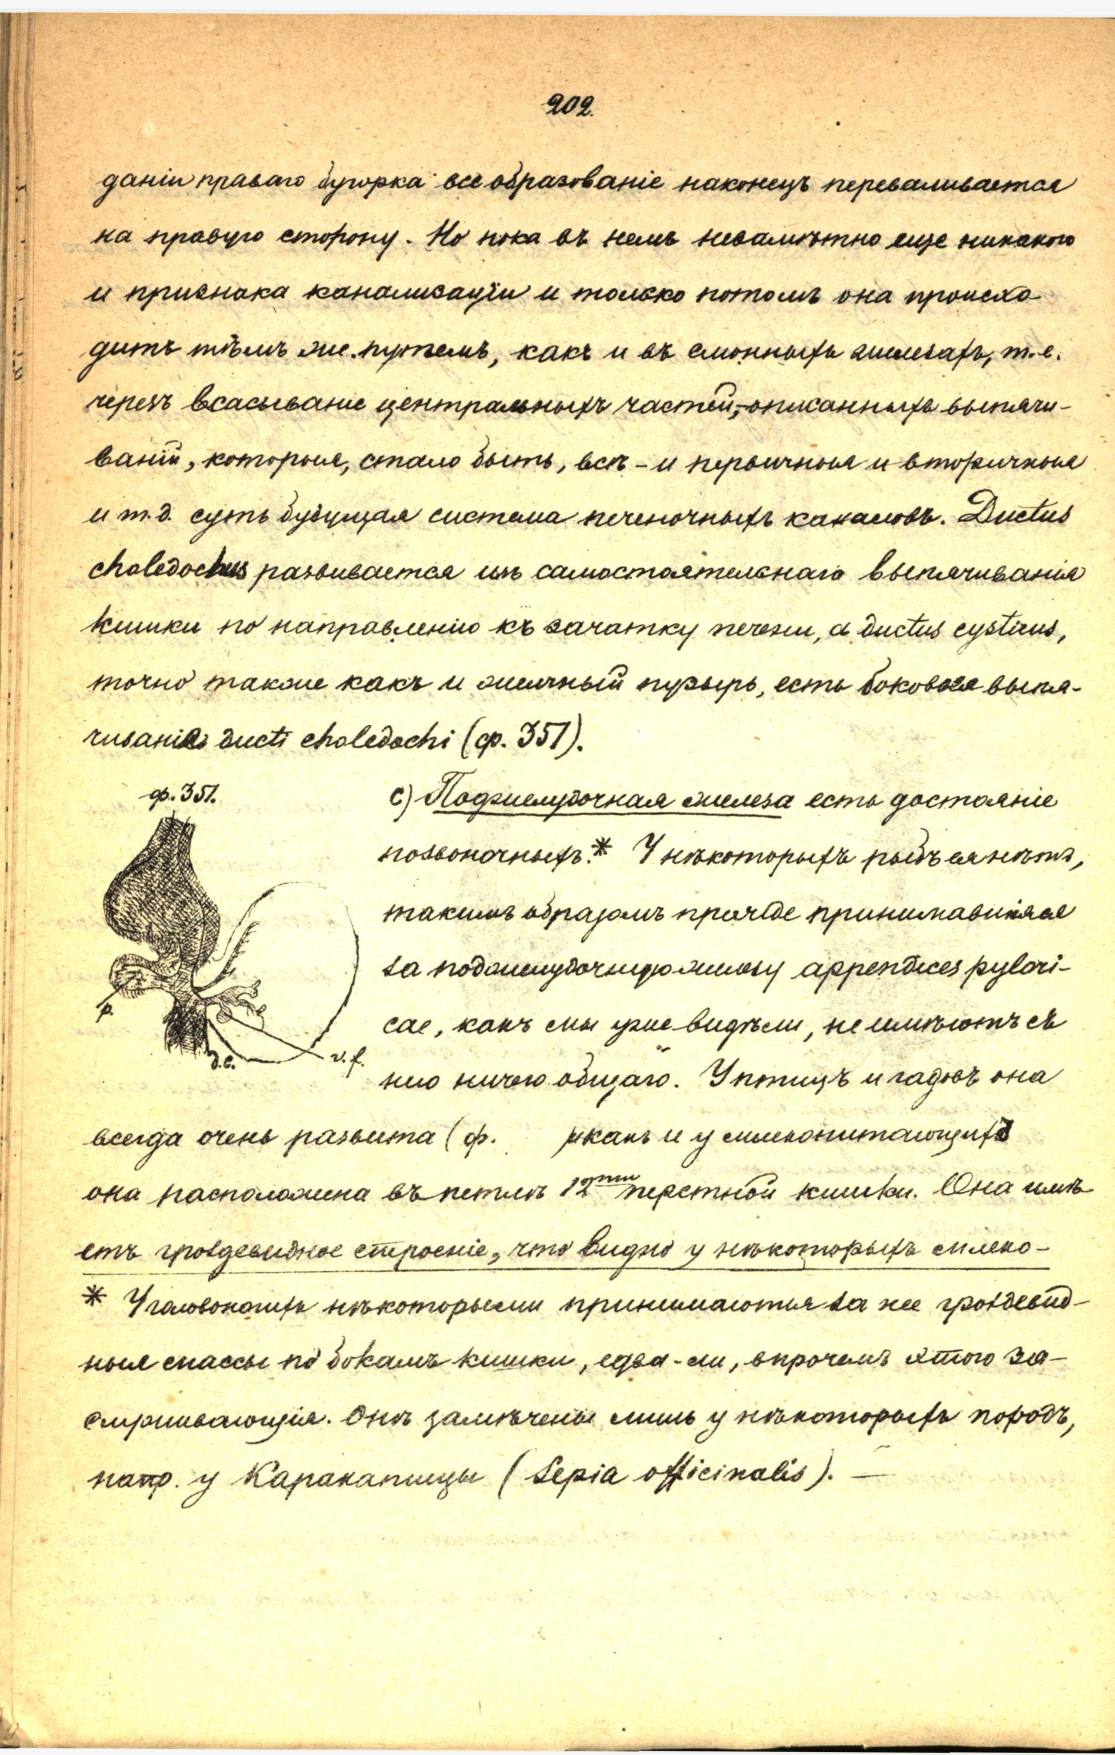 202.
даніи праваго бугорка все образованіе наконецъ переваливается
на правую сторону. Но пока въ немъ незамѣтно еще никакого
и признака канализаціи и только потомъ она происхо-
дитъ тѣмъ же путемъ, какъ и въ слюнныхъ железахъ, т.е.
черезъ всасываніе центральныхъ частей, описанныхъ выпячи-
ваній, которыя, стало быть, всѣ - и первичныя и вторичныя
и т.д. суть будущая система печеночныхъ каналовъ. Ductus
choledochus развивается изъ самостоятельнаго выпячиванія
кишки по направленію къ зачатку печени, а ductus cysticus,
точно также какъ и желчный пузырь, есть боковыя выпя-
чиванія ducti choledochi (ф. 351).
ф. 351.
p.
d.c.
v.f.
с) Поджелудочная железа есть достояніе
позвоночныхъ.* У нѣкоторыхъ рыбъ ея нѣтъ,
такимъ образомъ прежде принимавшіяся
за поджелудочную железу appendices pylori-
cae, какъ мы уже видѣли, не имѣютъ съ
нею ничего общаго. У птицъ и гадовъ она
всегда очень развита (ф. какъ и у млекопитающихъ
она расположена въ петлѣ 12ти перстной кишки. Она имѣ-
етъ гроздевидное строеніе, что видно у нѣкоторыхъ млеко-
* У головоногихъ нѣкоторыми принимаются за нее гроздевид-
ныя массы по бокамъ кишки, едва-ли, впрочемъ этого за-
служивающія. Онѣ замѣчены лишь у нѣкоторыхъ породъ,
напр. у Каракатицы (Sepia officinalis). —